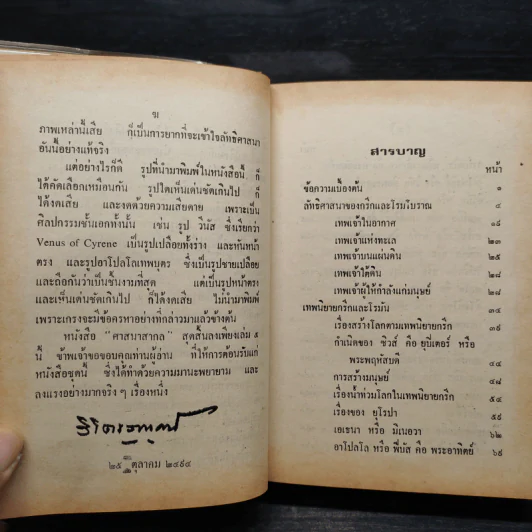 ข
ภาพเหล่านี้เสีย ก็เป็นการยากที่จะเข้าใจลัทธิศาสนา
อันนี้อย่างแท้จริง
แต่อย่างไรก็ดี รูปที่นำมาพิมพ์ในหนังสือนี้ ก็
ได้คัดเลือกเหมือนกัน รูปใดเห็นเด่นชัดเกินไป ก็
ได้งดเสีย และงดด้วยความเสียดาย เพราะเป็น
ศิลปกรรมชั้นเอกทั้งนั้น เช่น รูป วีนัส ซึ่งเรียกว่า
Venus of Cyrene เป็นรูปเปลือยทั้งร่าง และหันหน้า
ตรง และรูปอาโปลโลเทพบุตร ซึ่งเป็นรูปชายเปลือย
และถือกันว่าเป็นชิ้นงามที่สุด แต่เป็นรูปหน้าตรง
และเห็นเด่นชัดเกินไป ก็ได้งดเสีย ไม่นำมาพิมพ์
เพราะเกรงจะมีข้อครหาอย่างที่กล่าวมาแล้วข้างต้น
หนังสือ “ศาสนาสากล” สุดสิ้นลงเพียงเล่ม ๕
นี้ ข้าพเจ้าขอขอบคุณท่านผู้อ่าน ที่ให้การต้อนรับแก่
หนังสือชุดนี้ ซึ่งได้ทำด้วยความมานะพยายาม และ
ลงแรงอย่างมากจริง ๆ เรื่องหนึ่ง
๒๕ ตุลาคม ๒๔๙๔
สารบาญ
หน้า
ข้อความเบื้องต้น ๑
ลัทธิศาสนาของกรีกและโรมโบราณ ๔
เทพเจ้าในอากาศ ๑๘
เทพเจ้าแห่งทะเล ๒๓
เทพเจ้าบนแผ่นดิน ๒๕
เทพเจ้าใต้ดิน ๒๘
เทพเจ้าผู้ให้กำลังแก่มนุษย์ ๒๘
เทพนิยายกรีกและโรมัน ๓๙
เรื่องสร้างโลกตามเทพนิยายกรีก ๓๙
กำเนิดของ ซิวส์ คือ ยูปิเตอร์ หรือ
พระพฤหัสบดี ๔๔
การสร้างมนุษย์ ๔๘
เรื่องน้ำท่วมโลกในเทพนิยายกรีก ๕๔
เรื่องของ ยุโรปา ๕๙
เอเธนา หรือ มิเนอวา ๖๒
อาโปลโล หรือ ฟีบัส คือ พระอาทิตย์ ๖๙